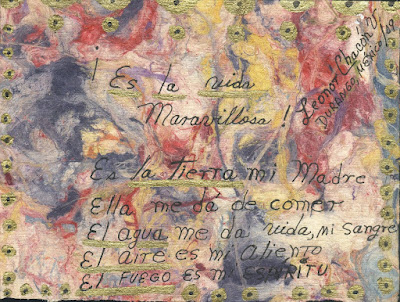 ¡ Es la vida
Maravillosa !
Leonor Chacón V.
DURANGO, MÉXICO/09
Es la Tierra mi Madre
Ella me dá de comer
El agua me da vida, mi Sangre
El AIRE es mi Aliento
El FUEGO ES MI ESPIRITU